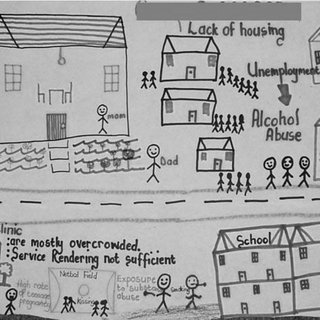 Lack of housing
Unemployment
Alcohol
Abuse
mom
Dad
linic
:are mostly overcrowded.
:Service Rendering not sufficient
School
High rate
of teenage
pregnancy
Netbal Field
Kissing
Exposure
to substance
abuse
Smoking